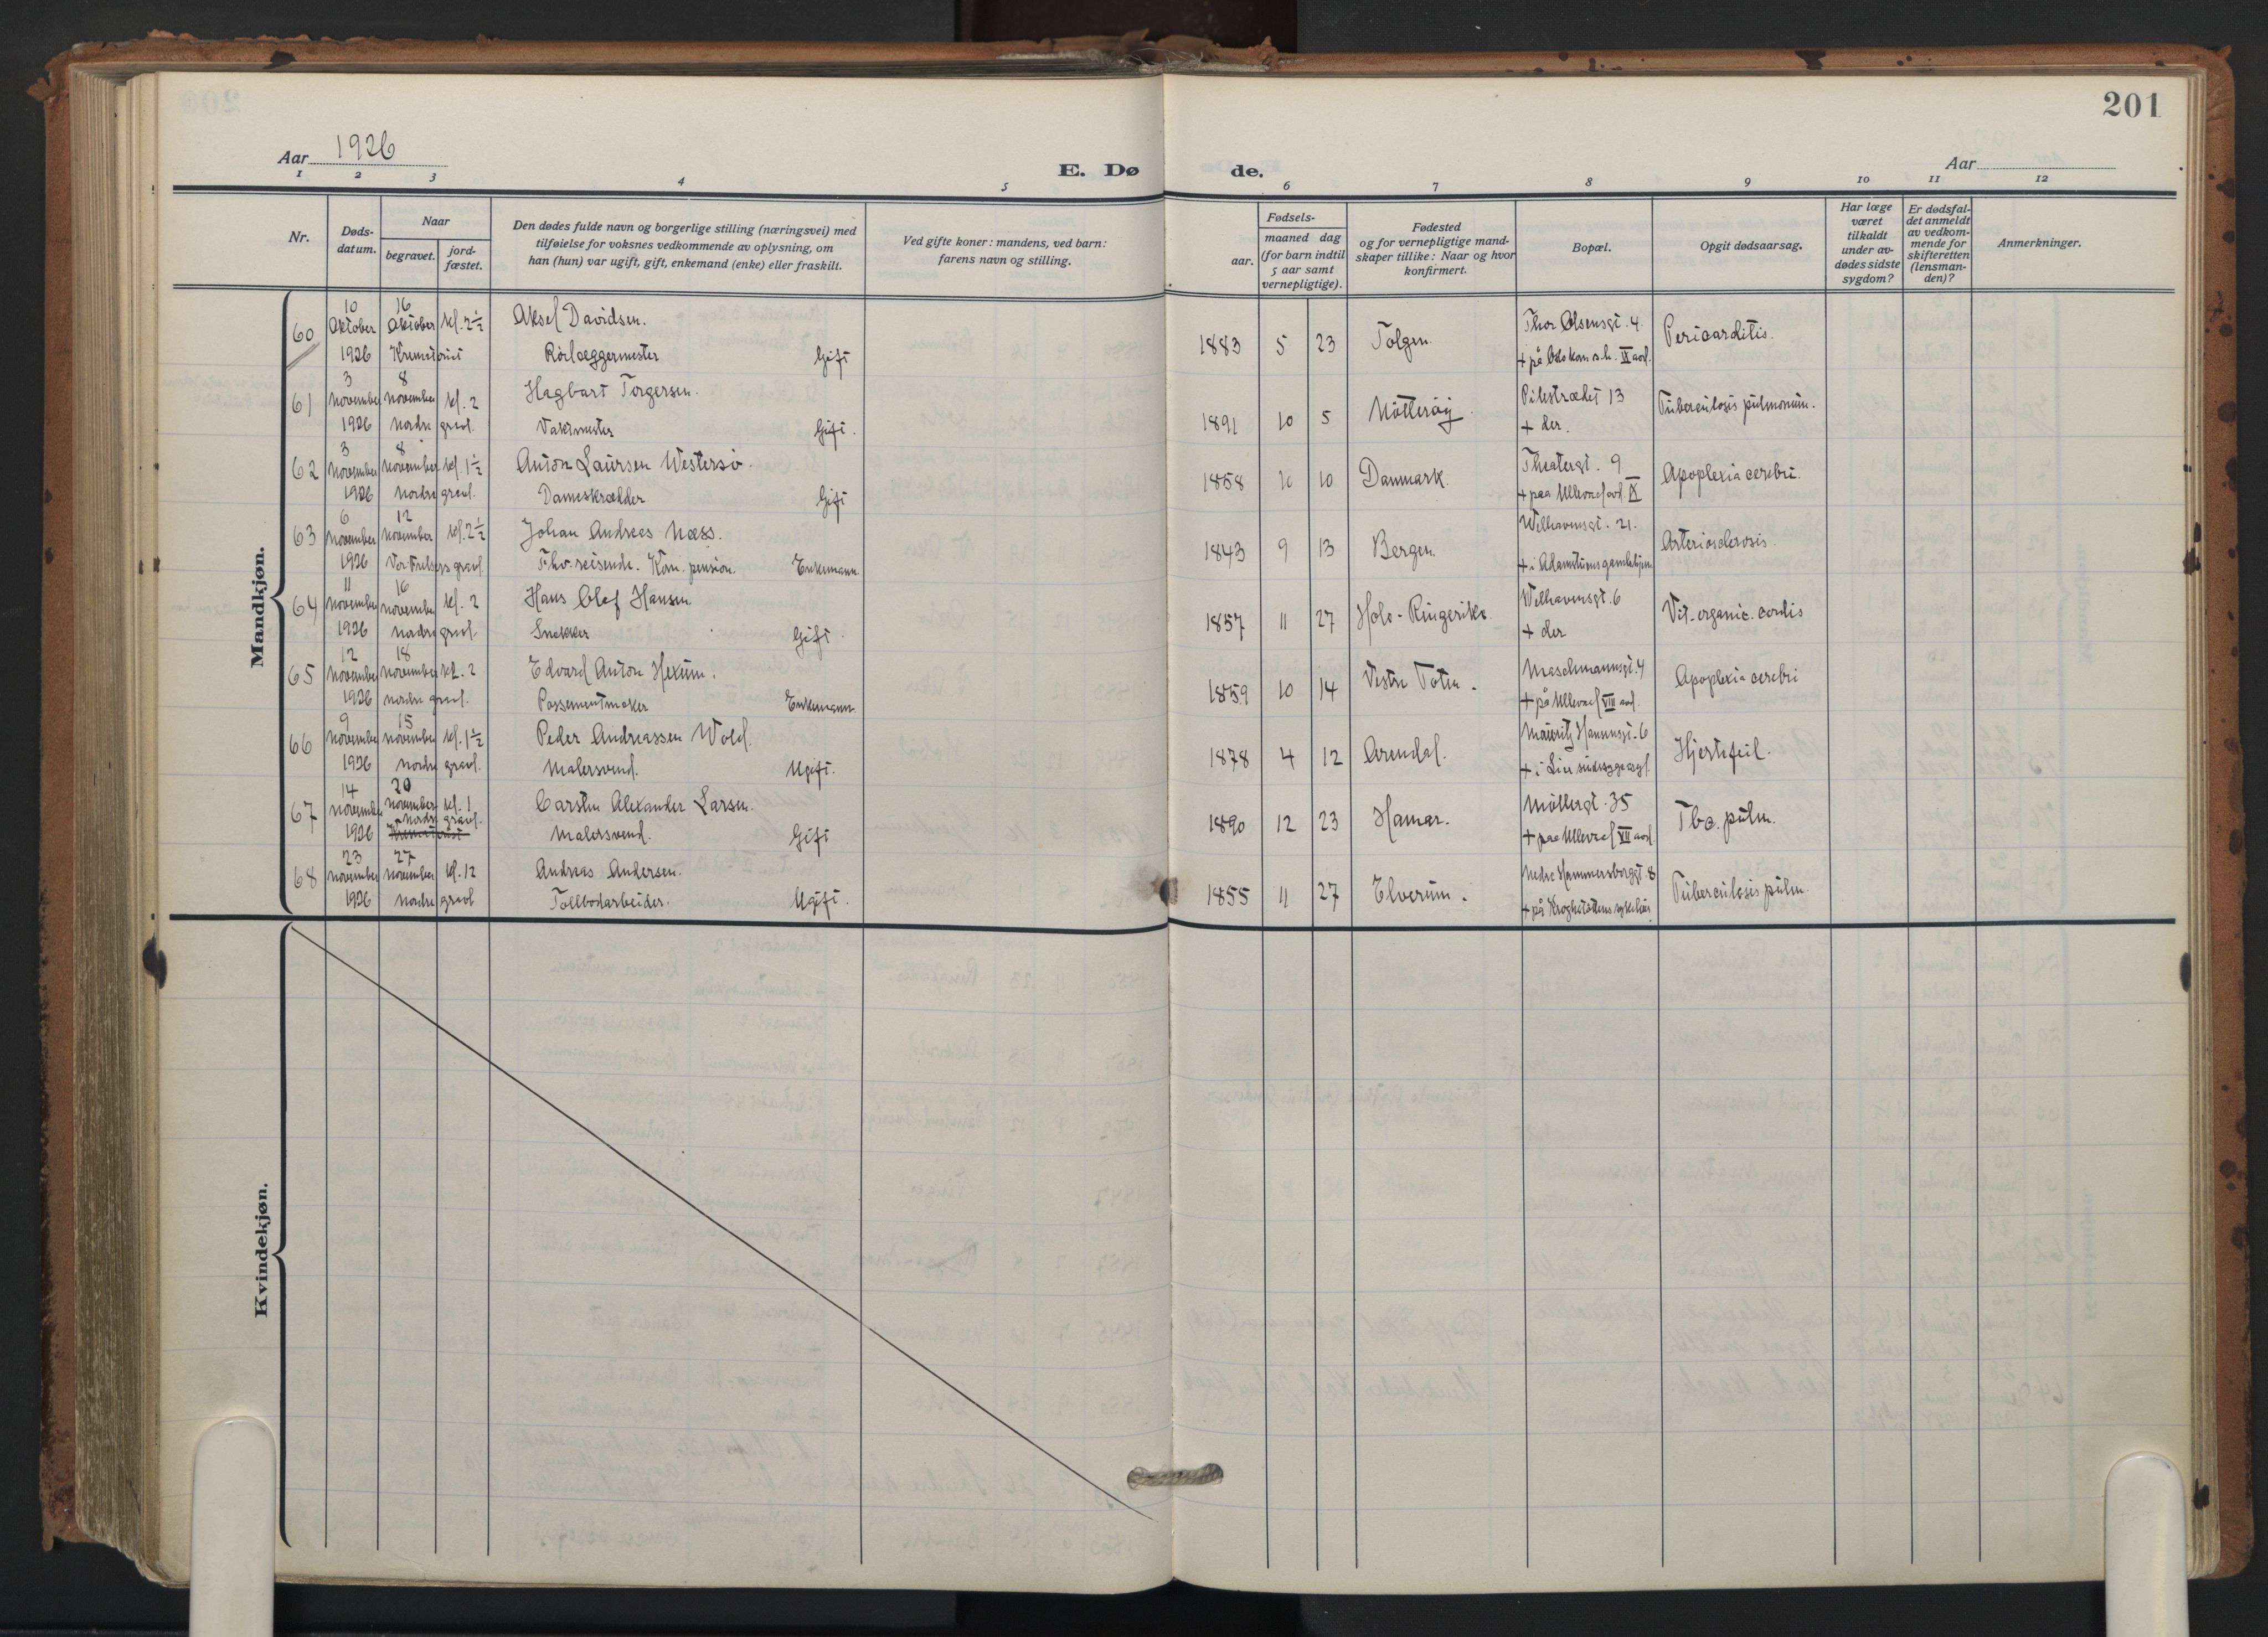 201
Aar 1926
E. Dø de.
Aar
1 2 3 4 5 6 7 8 9 10 11 12
Nr.
Døds-
datum.
Naar
begravet.
jord-
fæstet.
Den dødes fulde navn og borgerlige stilling (næringsvei) med
tilføielse for voksnes vedkommende av oplysning, om
han (hun) var ugift, gift, enkemand (enke) eller fraskilt.
Ved gifte koner: mandens, ved barn:
farens navn og stilling.
Fødsels-
aar.
maaned dag
(for barn indtil
5 aar samt
vernepligtige).
Fødested
og for vernepligtige mand-
skaper tillike: Naar og hvor
konfirmert.
Bopæl.
Opgit dødsaarsag.
Har læge
været
tilkaldt
under av-
dødes sidste
sygdom?
Er dødsfal-
det anmeldt
av vedkom-
mende for
skifteretten
(lensman-
den)?
Anmerkninger.
Mandkjøn.
10 16
60 Oktober Oktober kl. 2½ Aksel Davidsen. 1883 5 23 Tolgen. Thor Olsensgt. 4. Pericarditis.
1926 Krematoriet Rörlæggermester Gift + på Oslo kom. s.h. IX avd.
3 8
61 November November kl. 2 Hagbart Torgersen. 1891 10 5 Nötteröy. Pilestrædet 13 Tuberculosis pulmonum.
1926 Nordre gravl. Vaktmester Gift. + der.
3 8
62 November November kl. 1½ Anton Laursen Westersö. 1858 10 Danmark. Theatergt. 9 Apoplexia cerebri.
1926 Nordre gravl. Dameskrædder Gift + paa Ullevaal avd. IX
6 12
63 November November kl. 2½ Johan Andreas Næss. 1843 9 13 Bergen. Welhavensgt. 21. Arteriosclerosis.
1926 Vor Frelsers gravl. Fhv. reisende. Kom. pension. Enkemann. + i Adamstuens gamlehjem
11 16
64 November November kl. 2 Hans Olaf Hansen 1857 11 27 Hole - Ringerike. Welhavensgt. 6 Vit. organic. cordis
1926 Nordre gravl. Snekker Gift. + der
12 18
65 November November kl. 2 Edvard Anton Hexum. 1859 10 14 Vestre Toten. Maschmannsgt. 4 Apoplexia cerebri
1926 Nordre gravl. Possementmaker Enkemann. + på Ullevaal VIII avd.
9 15
66 November November kl. 1½ Peder Andreassen Wold. 1878 4 12 Arendal. Mauritz Hansensgt. 6 Hjertefeil.
1926 Nordre gravl. Malersvend. Ugift. + i Lier sindssygeasyl.
14 20
67 November November kl. 1 Carsten Alexander Larsen. 1890 12 23 Hamar. Möllergt. 35 Tbc. pulm.
Nordre gravl.
1926 Krematoriet Malersvend. Gift + paa Ullevaal VII avd.
23 27
68 November November kl. 12 Andreas Andersen. 1855 11 27 Elverum. Nedre Hammersborggt. 8 Tuberculosis pulm.
1926 Nordre gravl Tollbodarbeider. Ugift. + på Krogstöttens sykehus
Kvindekjøn.